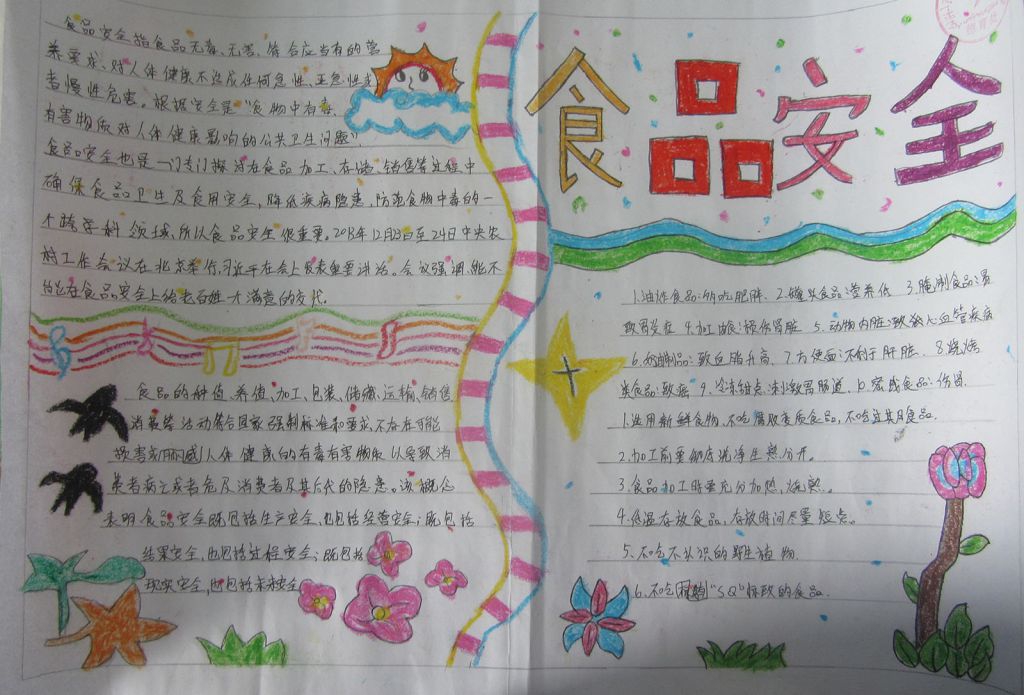 食品安全
食品安全指食品无毒、无害,符合应当有的营
养要求,对人体健康不造成任何急性、亚急性或
者慢性危害。根据安全是“食物中有毒、
有害物质对人体健康影响的公共卫生问题”
食品安全也是一门专门探讨在食品加工、存储、销售等过程中
确保食品卫生及食用安全,降低疾病隐患,防范食物中毒的一
个跨学科领域,所以食品安全很重要。2013年12月23日至24日中央农
村工作会议在北京举行,习近平在会上发表重要讲话。会议强调,能不
能在食品安全上给老百姓一个满意的交代
食品的种值、养值、加工、包装、储藏、运输、销售
消费等活动符合国家强制标准和要求,不存在可能
损害或威胁人体健康的有毒有害物质以导致消
费者病亡或者危及消费者及其后代的隐患。该概念
表明食品安全既包括生产安全,也包括经营安全;既包括
结果安全,也包括过程安全;既包括
现实安全,也包括未来安全
1.油炸食品:所吃肥胖、2.罐头食品:营养低 3.腌制食品:胃
致胃发炎 4.加工肉食:损伤肾脏 5.动物内脏:致癌心血管疾病
6.奶制品:致血脂升高、7.方便面:不利于肝脏、8.烧烤
类食品:致癌 9.冷冻甜点:刺激胃肠道、10.
1.选用新鲜食物,不吃腐败变质食品,不吃过期食品.
2.加工前要彻底洗净生熟分开。
3.食品加工时要充分加热,烧熟。
4.低温存放食品,存放时间尽量短点。
5.不吃不认识的野生植物.
6.不吃 “SQ”标致的食品.